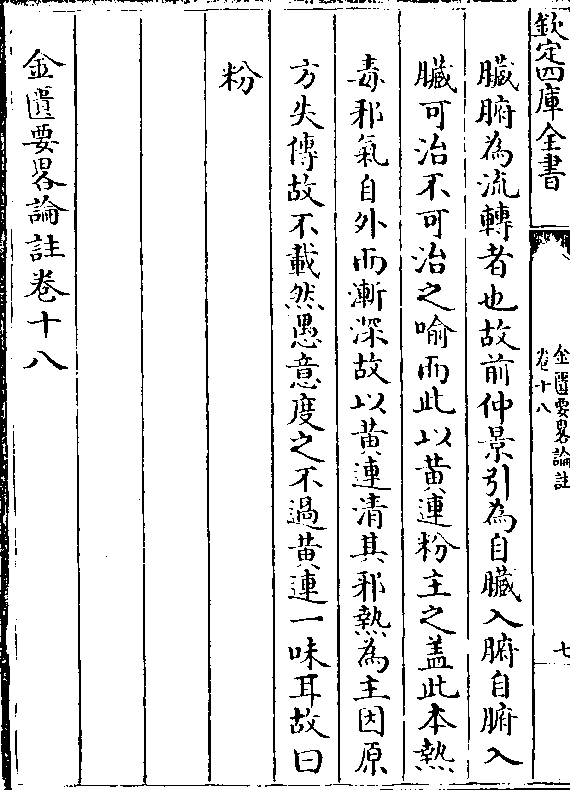 欽定四庫全書
金匱要畧論註
卷十八
七
臟腑為流轉者也故前仲景引為自臟入腑自腑入
臟可治不可治之喻而此以黄連粉主之盖此本熱
毒邪氣自外而漸深故以黄連清其邪熱為主因原
方失傳故不載然愚意度之不過黄連一味耳故曰
粉
金匱要畧論註卷十八